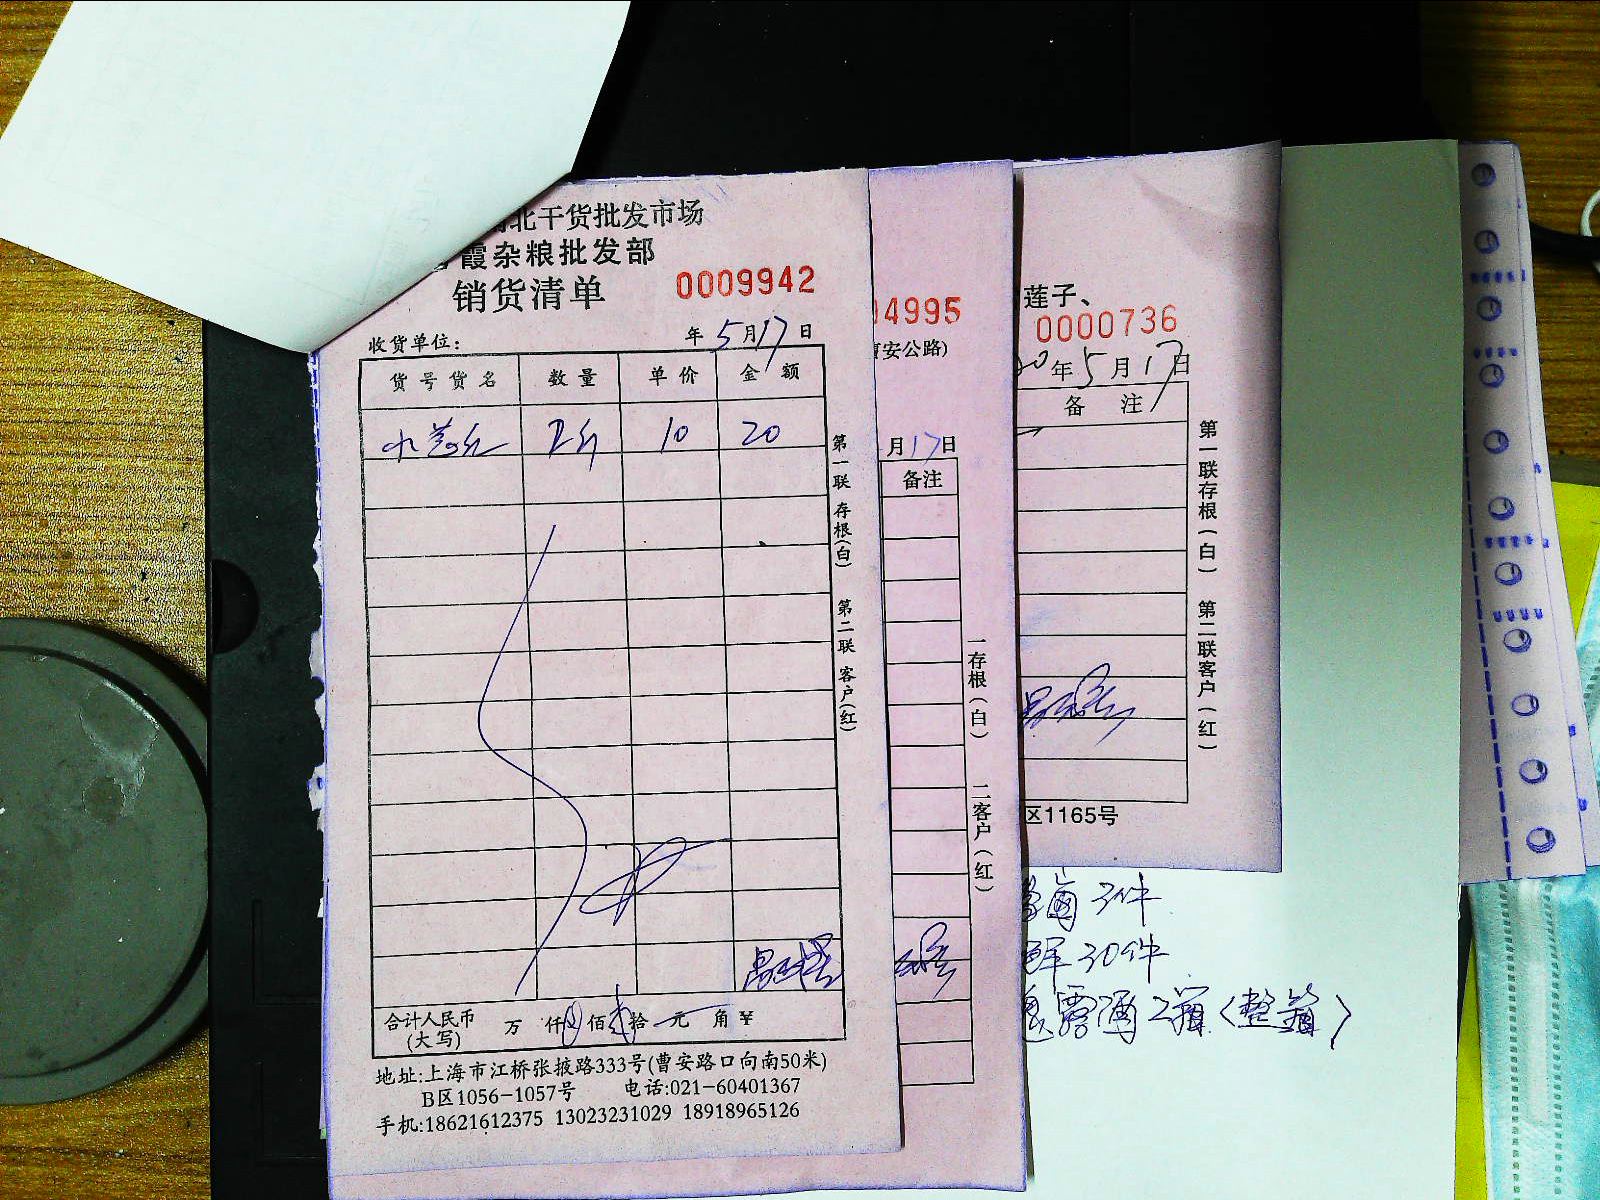 北干货批发市场
霞杂粮批发部
销货清单
0009942
收货单位: 年 5月17日
货号货名 数量 单价 金额
2斤 10 20
第一联 存根(白) 第二联 客户(红)
合计人民币 万 仟 佰 拾 元 角 ¥
(大写)
地址:上海市江桥张掖路333号(曹安路口向南50米)
B区1056-1057号 电话:021-60401367
手机:18621612375 13023231029 18918965126
4995
安公路)
月17日
备注
一存根(白) 二客户(红)
莲子、
0000736
年5月17日
备注
第一联存根(白) 第二联客户(红)
区1165号
3件
30件
2箱(整箱)